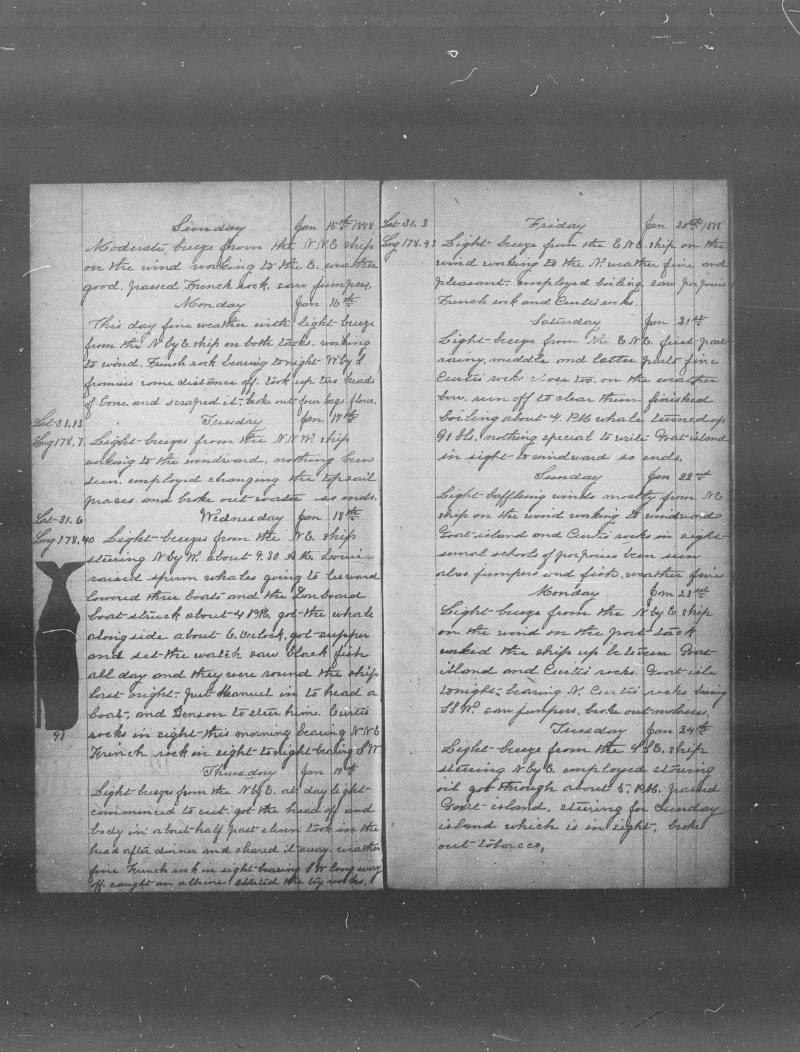 Sunday Jan 15th 1888
Moderate breeze from the N N E ship
on the wind working to the E. weather
good. passed French rock, saw jumpers,
Monday Jan 16th
This day fine weather with light breeze
from the N by E ship on both tacks. working
to wind. French rock bearing tonight W by S
some distance off. took up two heads
of bone and scraped it, broke out four bags flour.
Lat 31.13 Tuesday Jan 17th
Long 178.7. Light breezes from the N N W. ship
working to the windward, nothing been
seen. employed changing the topsail
braces and broke out water so ends.
Lat 31.6 Wednesday Jan 18th
Long 178.40 Light breezes from the N E. ship
steering N by W. about 9.30 A M.
raised spurm whales going to leeward
lowered three boats and the Larboard
boat struck about 4 P M, got the whale
along side about 6, Oclock, got supper
and set the watch saw black fish
all day and they were round the ship
last night. Put Manuel in to head a
boat, and Benson to steer him. Curtis
rocks in sight this morning bearing N N E
French rock in sight to night bearing S W
91
Thursday Jan 19th
Light breezes from the N by E. at day light
commenced to cut. got the head off and
body in about half past eleven took in the
head after dinner and cleared it away. weather
fine French rock in sight bearing S W long way
off. caught an started the try works.
Lat 31.3 Friday Jan 20th 1888
Long 178.43 Light breeze from the E N E. ship on the
wind working to the N. weather fine and
pleasant. employed boiling saw porpoises
French rock and Curtis rocks.
Saturday Jan 21st
Light breeze from the E N E. first part
rainy, middle and latter parts fine
Curtis rocks close too. on the weather
bow. run off to clear them finished
boiling about 4. P.M. whale turned up
91 bbls, nothing special to write Goat island
in sight to windward so ends.
Sunday Jan 22nd
Light baffleing winds mostly from N E
ship on the wind working to windward
Goat island and Curtis rocks in sight
several schools of porpoises been seen
also jumpers and fish, weather fine
Monday Jan 23rd
Light breeze from the N by E. ship
on the wind on the port tack
worked the ship up between Goat
island and Curtis rocks. Goat isle
tonight, bearing N. Curtis rocks being
S S W. saw jumpers. broke out molasses.
Tuesday Jan 24th
Light breeze from the S S E. ship
steering N by E. employed stowing
oil got through about 5. P.M. passed
Goat island, steering for Sunday
island which is in sight, broke
out tobacco,